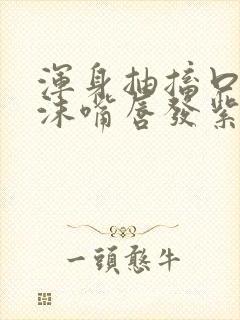 渾身抽搐口
沫嘴唇發紫
一頭憨牛